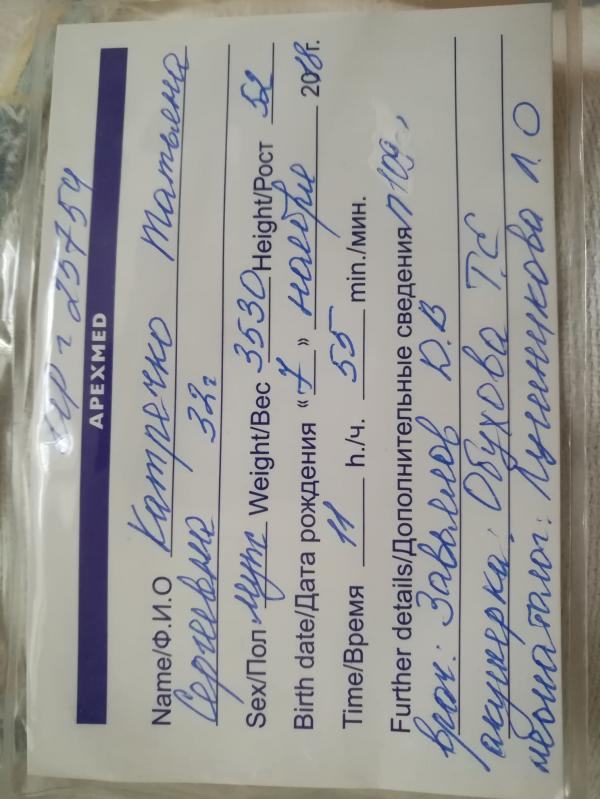 25754
APEXMED
Name/Ф.И.О Катречко Татьяна
Сергеевна 32г
Sex/Пол муж Weight/Вес 3530 Height/Рост 52
Birth date/Дата рождения “7” ноября 2018г.
Time/Время 11 h./ч. 55 min./мин.
Further details/Дополнительные сведения
врач: Завьялов Д.В
акушерка: Обухова Т.С
неонаталог: Лучинкова Л.О